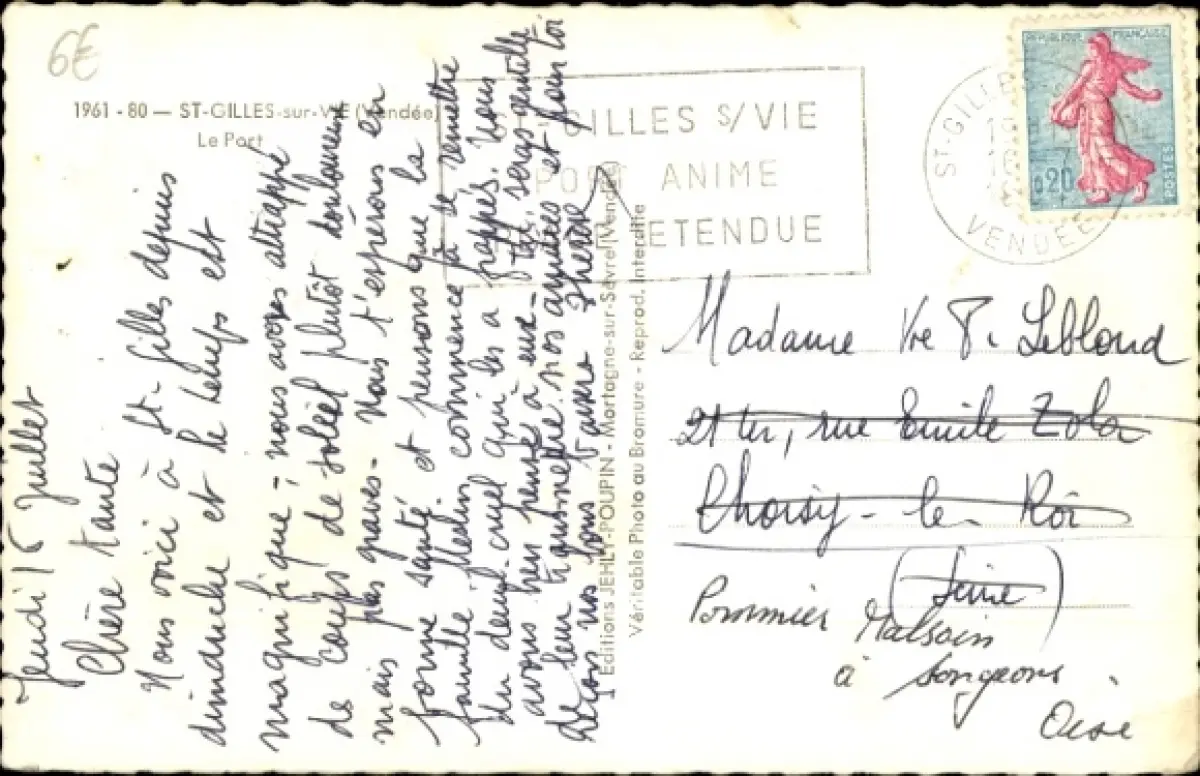 6€
1961 - 80 — ST-GILLES-sur-VIE (Vendée)
Le Port
Jeudi 16 Juillet
Chère tante
Nous voici à St-Gilles depuis
dimanche et le temps est
magnifique - nous avons attrappé
de coups de soleil plutôt douloureux
mais pas graves - Nous t'espérons en
bonne santé et pensons que la
famille commence à se remettre
du deuil cruel qui les a frappés. Nous
avons bien pensé à eux - tu seras gentille
de leur transmettre nos amitiés et pour toi
nos bons baisers
Editions JEHLY-POUPIN - Mortagne-sur-Sèvre (Vendée)
Véritable Photo au Bromure - Reprod. Interdite
GILLES S/VIE
PORT ANIME
ETENDUE
ST-GILLES
VENDÉE
REPUBLIQUE FRANÇAISE
0,20
POSTES
Madame Vve P. Leblond
21 ter, rue Emile Zola
Choisy-le-Roi
(Seine)
Pommier Malsain
à Songeons
Oise